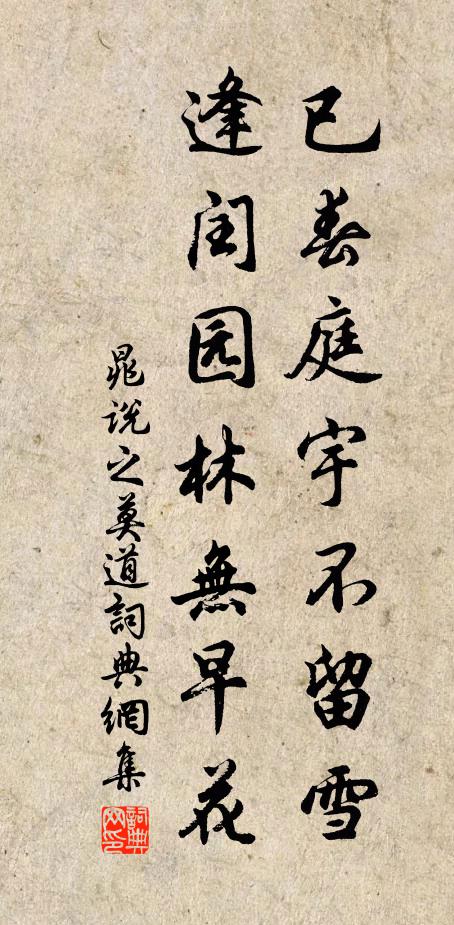 已春庭宇不留雪
逢闰园林無早花
晁说之莫道詞典網集
詞典网印